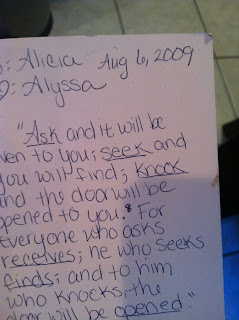 : Alicia Aug 6, 2009
: Alyssa
"Ask and it will be
ven to you; seek and
you will find; knock
and the door will be
opened to you." For
everyone who asks
receives; he who seeks
finds; and to him
who knocks, the
door will be opened."